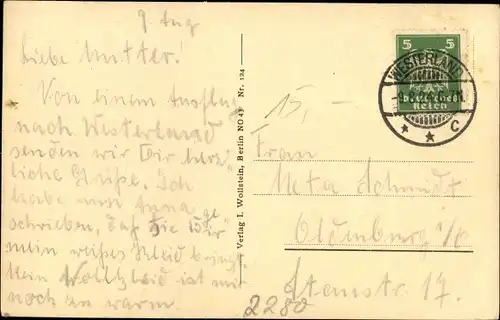 9. Aug
Liebe Mutter.
Von einem Ausflug
nach Westerland
senden wir Dir herz-
liche Grüße. Ich
habe nun Anna ge-
schrieben, daß sie Dir
mein weißes Kleid bringt.
Kein Wollkleid ist mir
noch zu warm.
Verlag I. Wollstein, Berlin NO 43 Nr. 124
15,-
5 5
Deutsches
Reich
WESTERLAND
* * C
Frau
Meta Schmidt
Oldenburg i/O
Steinstr. 17.
2280